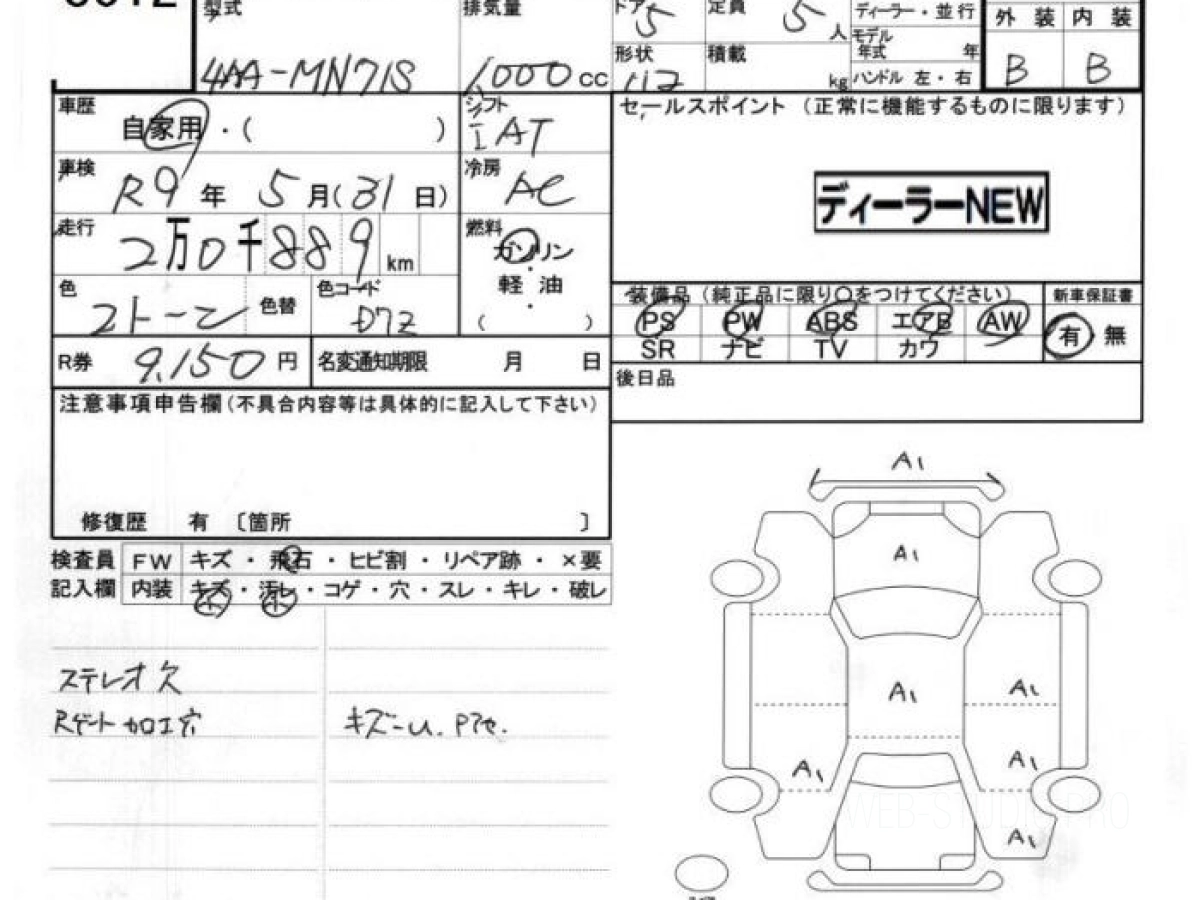 型式 排気量 ドア 5 定員 5 人 ディーラー・並行 外装 内装
モデル年式 年
4AA-MN71S 1000 cc 形状 積載 kg ハンドル 左・右 B B
車歴 自家用・( ) シフト IAT セールスポイント (正常に機能するものに限ります)
車検 R9年 5月(31日) 冷房 AC
ディーラーNEW
走行 2万0千889km 燃料 ガソリン・軽油・( )
色 2トーン 色替 色コード D7Z
装備品(純正品に限り○をつけてください) 新車保証書
PS PW ABS エアB AW 有 無
SR ナビ TV カワ
R券 9,150円 名変通知期限 月 日
後日品
注意事項申告欄(不具合内容等は具体的に記入して下さい)
修復歴 有 〔箇所 〕
検査員 FW キズ・飛石・ヒビ割・リペア跡・×要
記入欄 内装 キズ・汚レ・コゲ・穴・スレ・キレ・破レ
小 小
ステレオ欠
Rゲート加工穴 キズーU.Pアセ.
A1
A1
A1 A1
A1 A1
A1
WEB-STUDIO.PRO